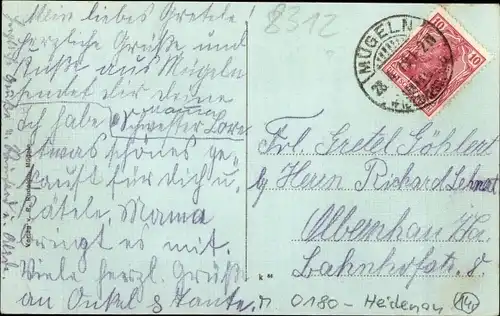 8312
Mein liebes Gretele!
herzliche Grüße und
Küsse aus Mügeln
sendet dir deine
Mama
Ich habe Schwester Lore
etwas schönes ge-
kauft für dich u.
Kätele, Mama
bringt es mit.
Viele herzl. Grüße
an Onkel & Tante.
MÜGELN
10
10
Frl. Gretel Göhlert
b/ Herrn Richard Lehnert
Olbernhau i/Sa.
Bahnhofstr. 8.
K 44
0180-Heidenau